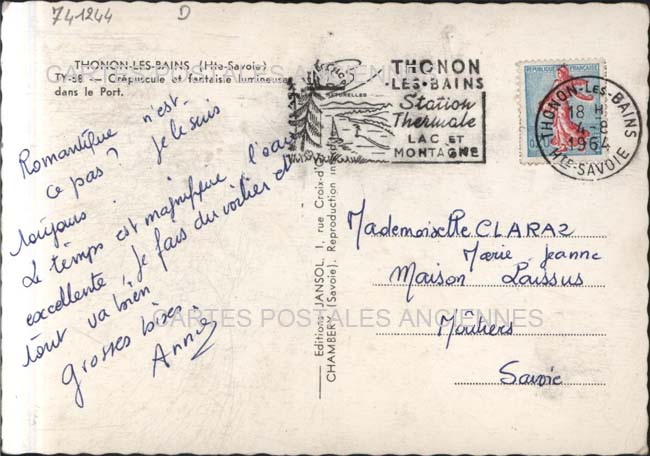 741244
D
THONON-LES-BAINS (Hte-Savoie)
TY-58 — Crépuscule et fantaisie lumineuse
dans le Port.
CARTES POSTALES ANCIENNES
Romantique n'est-
ce pas ? Je le suis
toujours.
Le temps est magnifique l'eau
excellente, je fais du voilier et
tout va bien
grosses bises.
Annie
Editions JANSOL, 1, rue Croix-d'
CHAMBERY (Savoie). Reproduction in
THONON
-LES-BAINS
Station
Thermale
LAC ET
MONTAGNE
REPUBLIQUE FRANÇAISE
THONON-LES-BAINS
18 H
4-8
1964
HTE-SAVOIE
Mademoiselle CLARAZ
Marie Jeanne
Maison Laissus
Moûtiers
Savoie
CARTES POSTALES ANCIENNES